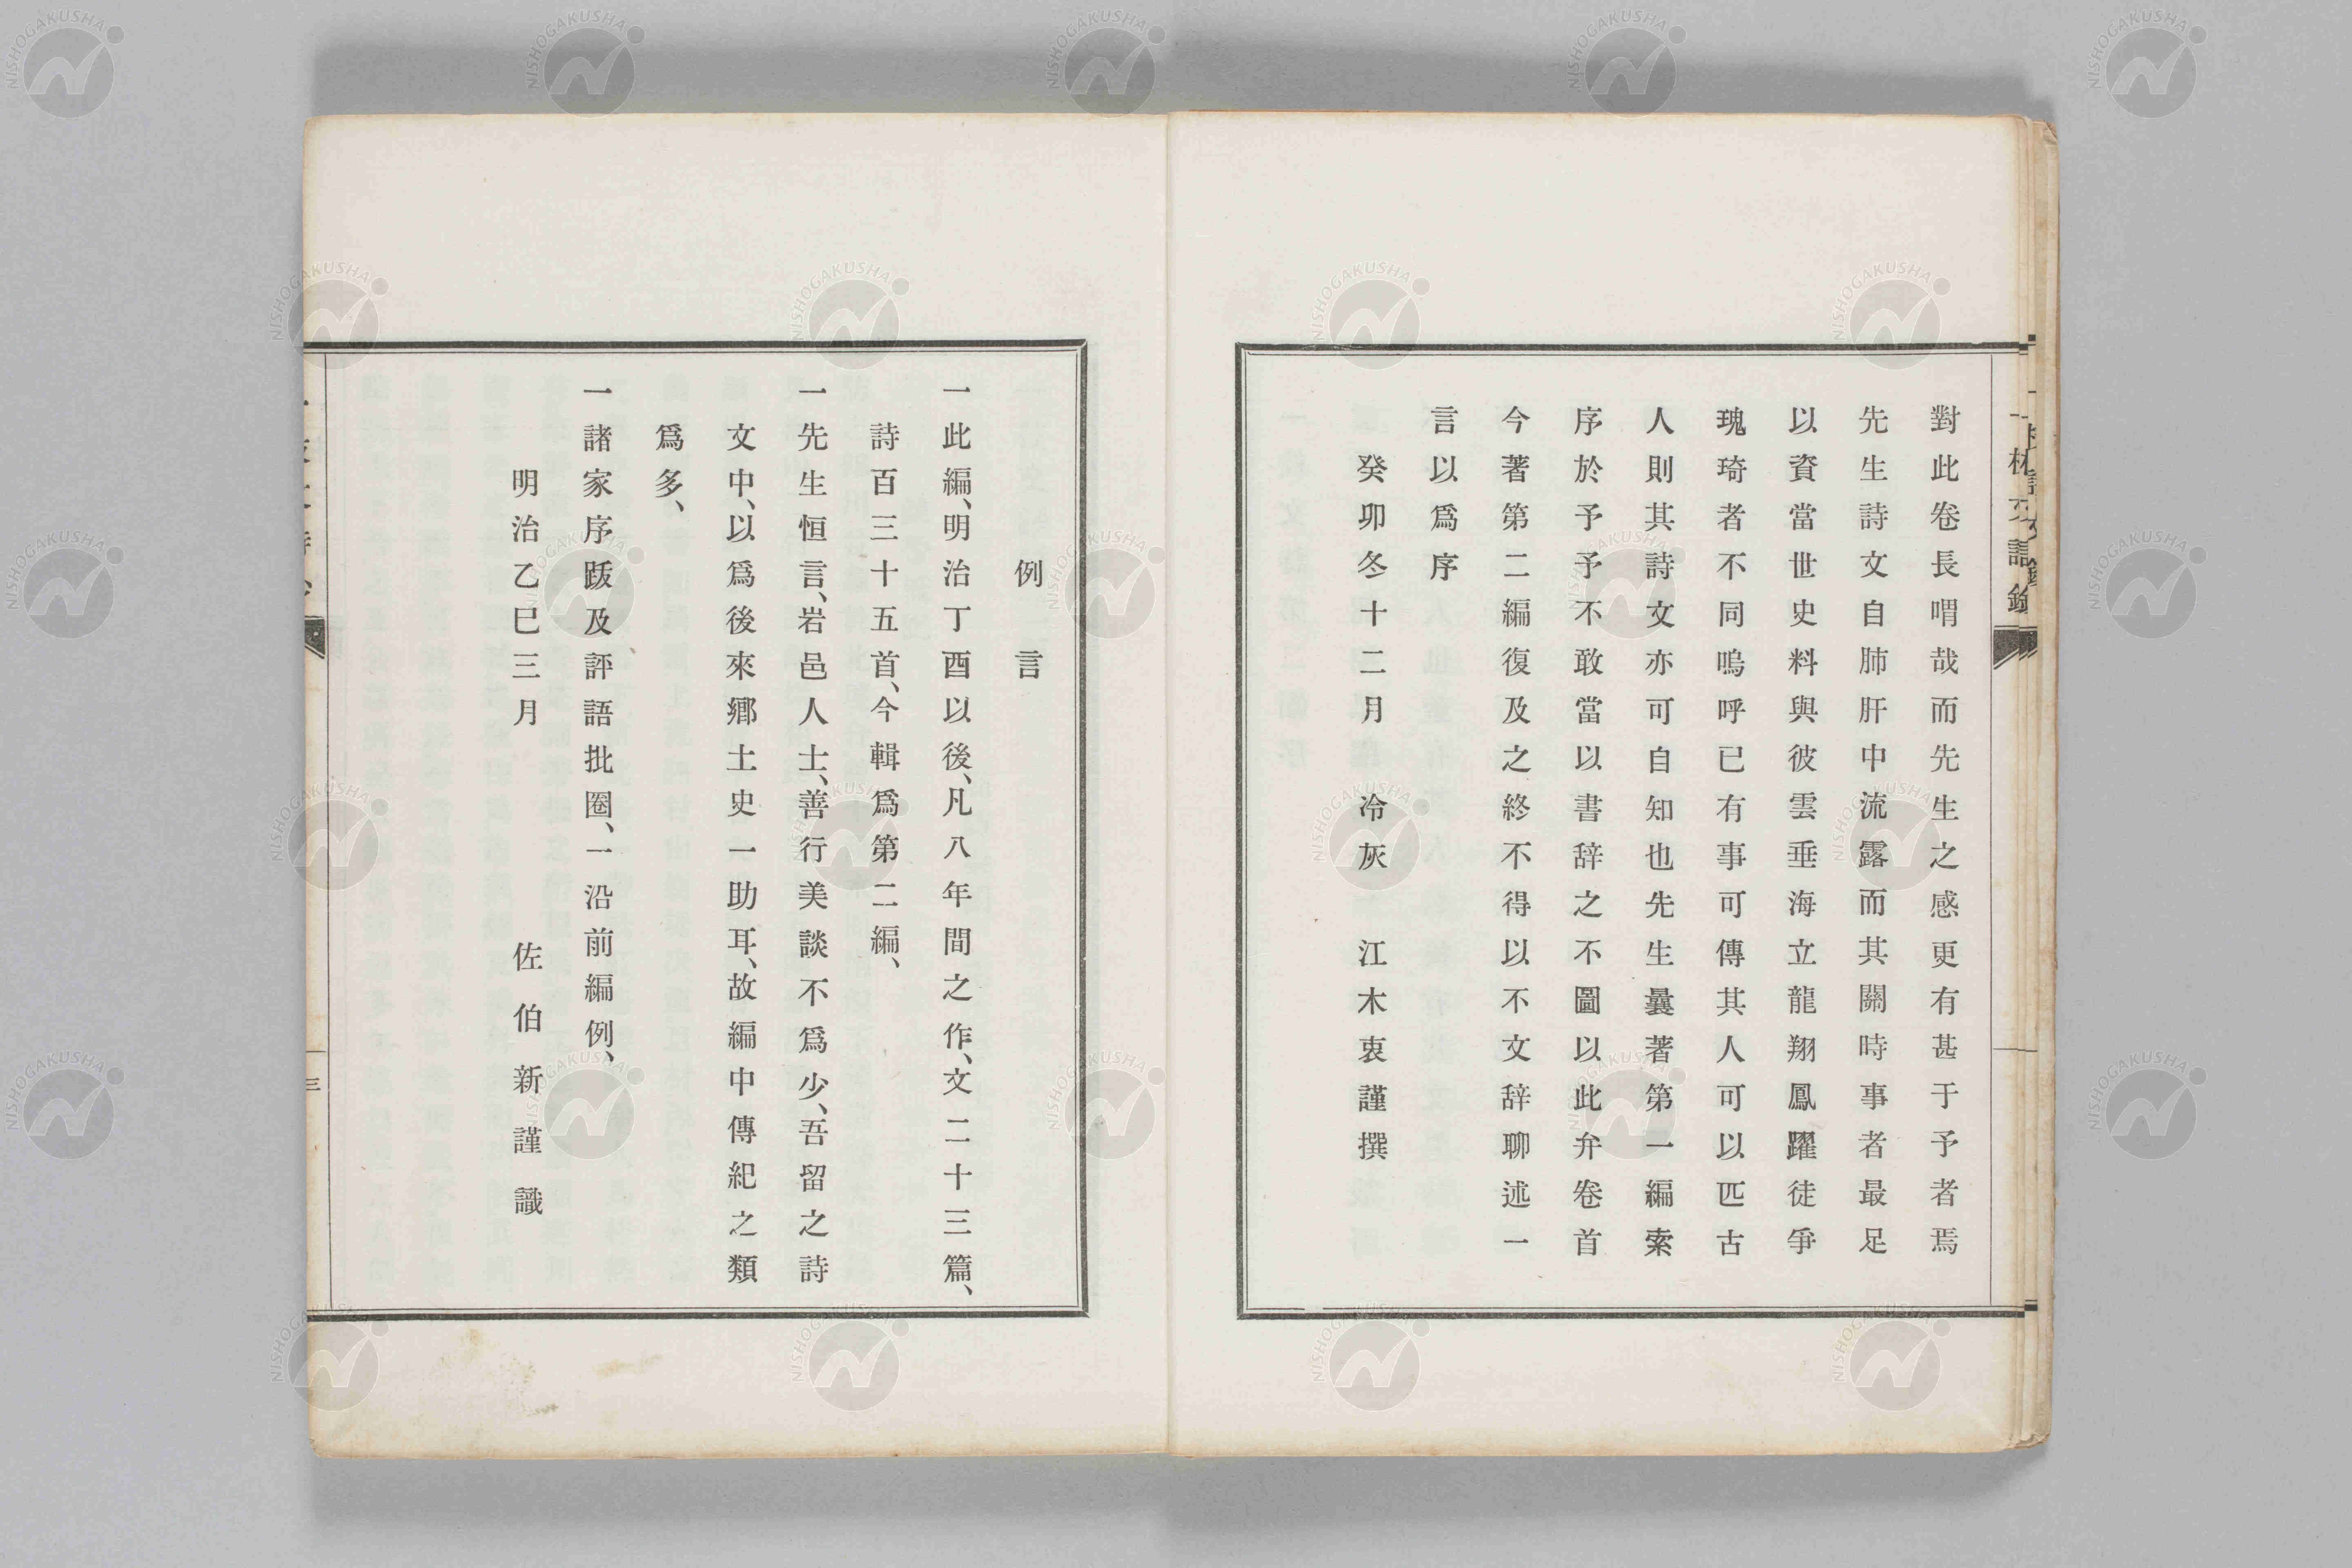 對此卷長喟哉而先生之感更有甚于予者焉
先生詩文自肺肝中流露而其關時事者最足
以資當世史料與彼雲垂海立龍翔鳳躍徒爭
瑰琦者不同嗚呼已有事可傳其人可以匹古
人則其詩文亦可自知也先生曩著第一編索
序於予予不敢當以書辞之不圖以此弁卷首
今著第二編復及之終不得以不文辞聊述一
言以爲序
癸卯冬十二月 冷灰 江木衷謹撰
例言
一此編、明治丁酉以後、凡八年間之作、文二十三篇、
詩百三十五首、今輯爲第二編、
一先生恒言、岩邑人士、善行美談不爲少、吾留之詩
文中、以爲後來鄕土史一助耳、故編中傳紀之類
爲多、
一諸家序跋及評語批圈、一沿前編例、
明治乙巳三月 佐伯新謹識
三
NISHOGAKUSHA